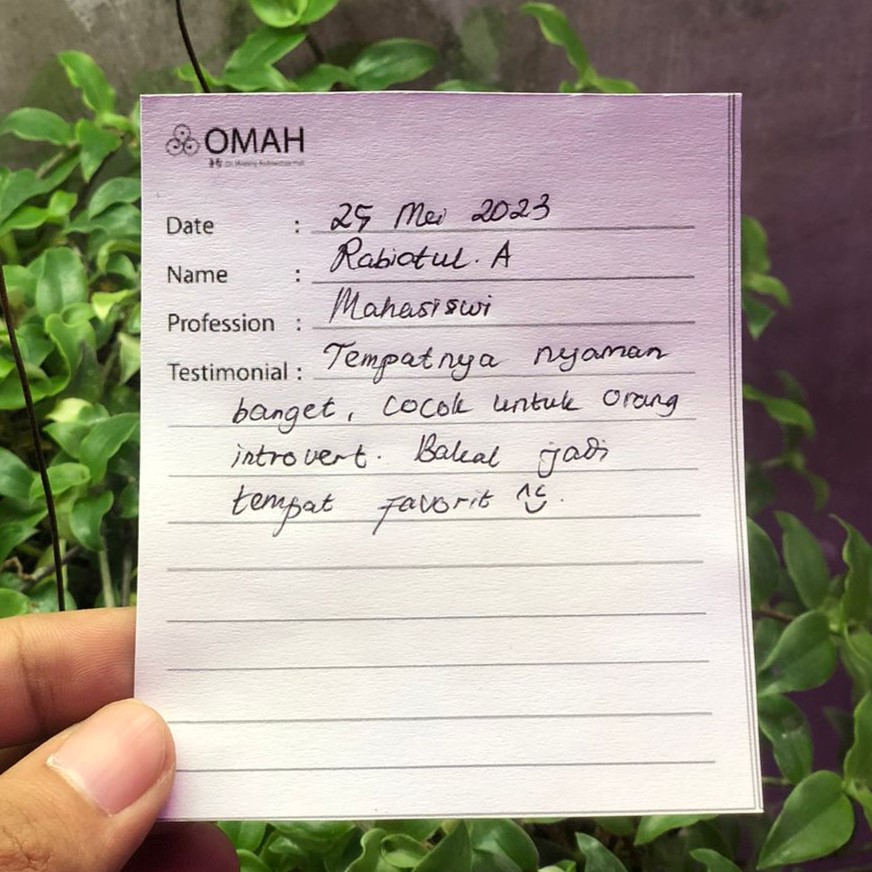 OMAH
Date : 25 Mei 2023
Name : Rabiatul. A
Profession : Mahasiswi
Testimonial : Tempatnya nyaman
banget, cocok untuk orang
introvert. Bakal jadi
tempat favorit